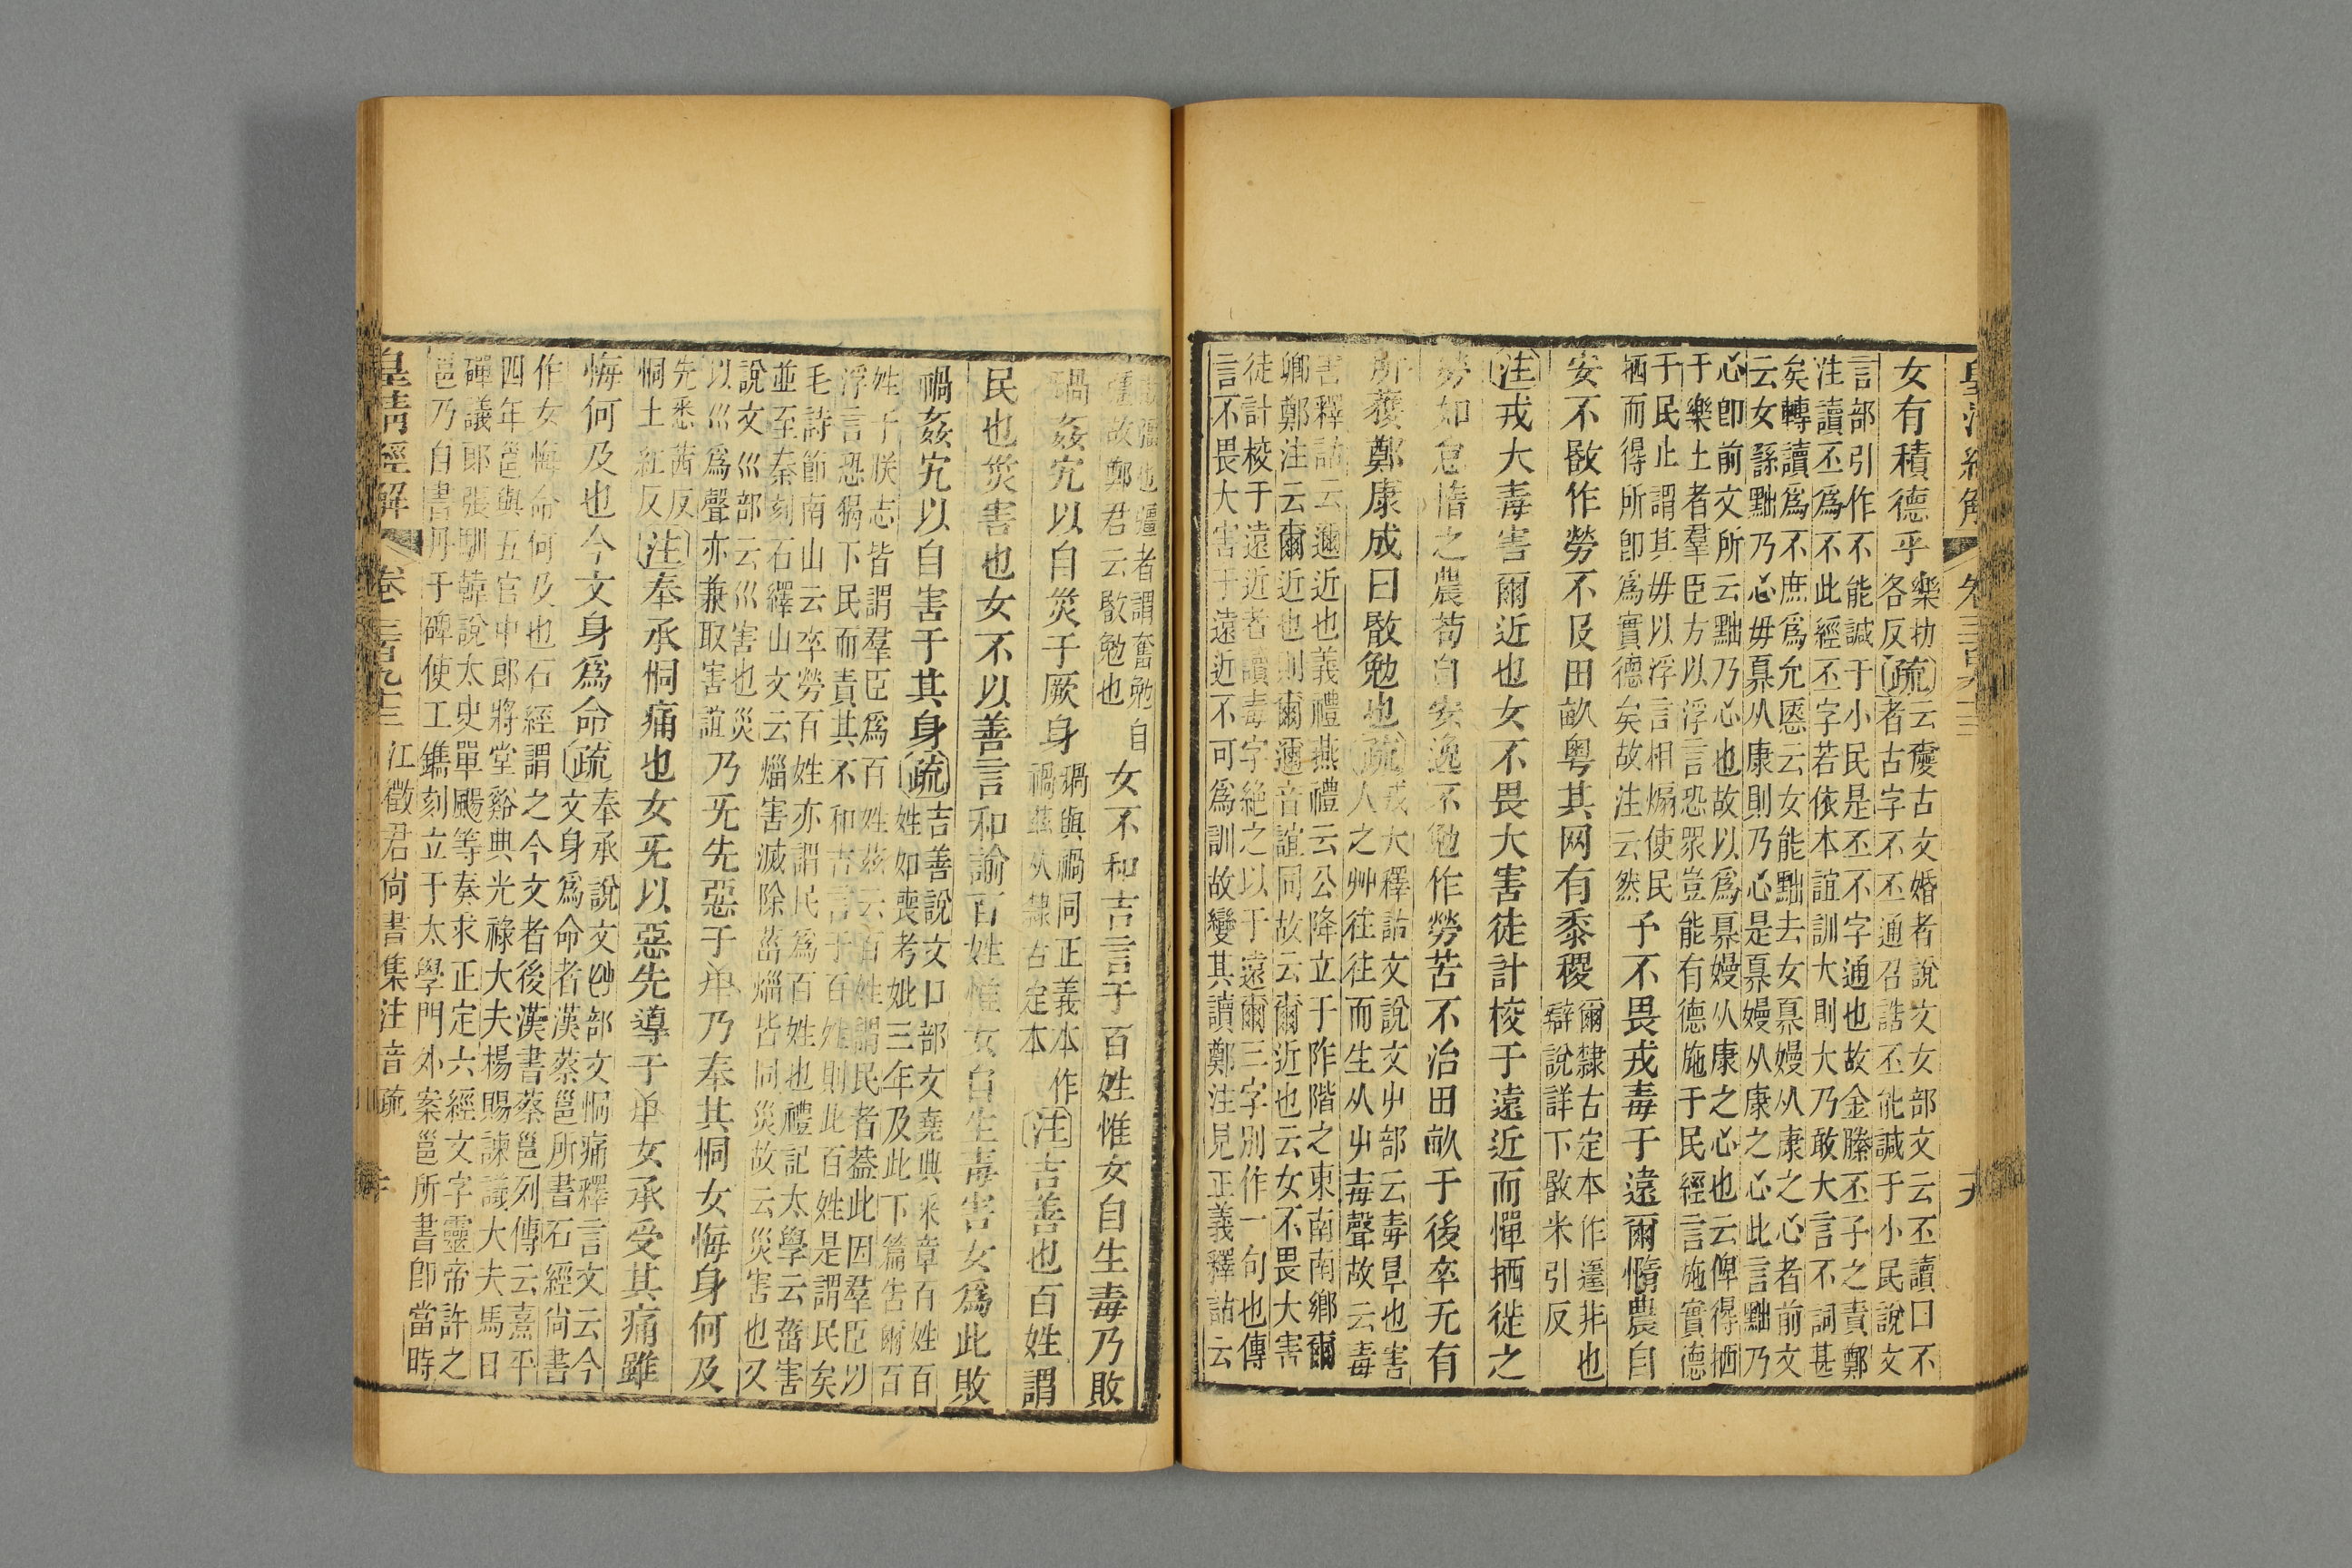 皇清經解 卷三百九十三 九
女有積德乎
樂扐
各反
疏
云𡣪古文婚者說文女部文云丕讀曰不
者古字不丕通召誥丕能諴于小民說文
言部引作不能諴于小民是丕不字通也故金縢丕子之責鄭
注讀丕爲不此經丕字若依本誼訓大則大乃敢大言不詞甚
矣轉讀爲不庶爲允愜云女能黜去女㬥嫚从康之心者前文
云女繇黜乃心毋㬥从康則乃心是㬥嫚从康之心此言黜乃
心卽前文所云黜乃心也故以爲㬥嫚从康之心也云俾得栖
于樂土者羣臣方以浮言恐眾豈能有德施于民經言施實德
于民止謂其毋以浮言相煽使民
栖而得所卽爲實德矣故注云然
予不畏戎毒于遠爾惰農自
安不敃作勞不𠬝田畝粤其网有黍稷
爾隸古定本作邇非也
辯說詳下敃米引反
注戎大毒害爾近也女不畏大害徒計校于遠近而憚栖徙之
勞如怠惰之農苟自安逸不勉作勞苦不治田畝于後卒无有
所穫鄭康成曰敃勉也疏
戎大釋詁文說文屮部云毒㫗也害
人之艸往往而生从屮毒聲故云毒
害釋詁云邇近也義禮燕禮云公降立于阼階之東南南鄉爾
卿鄭注云爾近也則爾邇音誼同故云爾近也云女不畏大害
徒計校于遠近者讀毒字絶之以于遠爾三字別作一句也傳
言不畏大害于遠近不可爲訓故變其讀鄭注見正義釋詁云
彊也彊者謂奮勉自
彊故鄭君云敃勉也
女不和吉言于百姓惟女自生毒乃敗
禍姦宄以自災于厥身
與禍同正義本作
禍茲从隸古定本
注吉善也百姓謂
民也災害也女不以善言和諭百姓惟女自生毒害女爲此敗
禍姦宄以自害于其身疏
吉善說文口部文堯典釆章百姓百
姓如喪考妣三年及此下篇告爾百
姓于朕志皆謂羣臣爲百姓茲云百姓謂民者葢此因羣臣以
浮言恐猲下民而責其不和吉言于百姓則此百姓是謂民矣
毛詩節南山云卒勞百姓亦謂民爲百姓也禮記太學云菑害
並至秦刻石繹山文云熸害滅除菑熸皆同災故云災害也又
說文巛部云巛害也災
以巛爲聲亦兼取害誼
乃旡先惡于𠦑乃奉其恫女悔身何及
先悉茜反
恫土紅反
注奉承恫痛也女旡以惡先導于𠦑女承受其痛雖
悔何及也今文身爲命疏
奉承說文𠬞部文恫痛釋言文云今
文身爲命者漢蔡邕所書石經尙書
作女悔命何及也石經謂之今文者後漢書蔡邕列傳云熹平
四年邕與五官中郎將堂谿典光祿大夫楊賜諫議大夫馬日
磾議郎張馴韓說太史單颺等奏求正定六經文字靈帝許之
邕乃自書丹于碑使工鐫刻立于太學門外案邕所書卽當時
皇清經解 卷三百九十三 江徵君尙書集注音疏